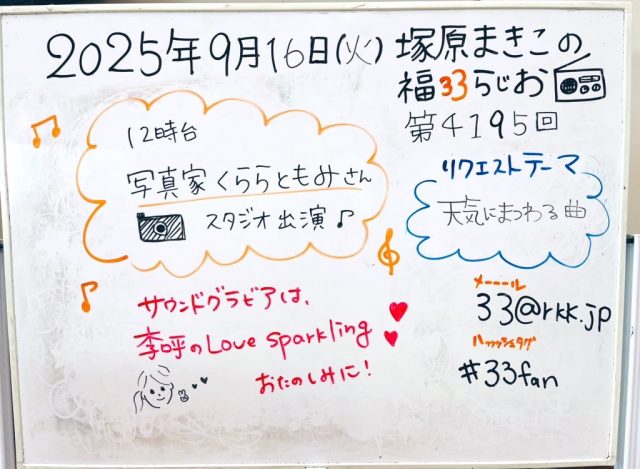 2025年9月16日(火)
塚原まきこの
福33らじお
第4195回
12時台
写真家くららともみさん
スタジオ出演♪
リクエストテーマ
天気にまつわる曲
サウンドグラビアは、
李呼のLove sparkling
おたのしみに!
メーーール
33@rkk.jp
ハッッシュタグ
#33fan